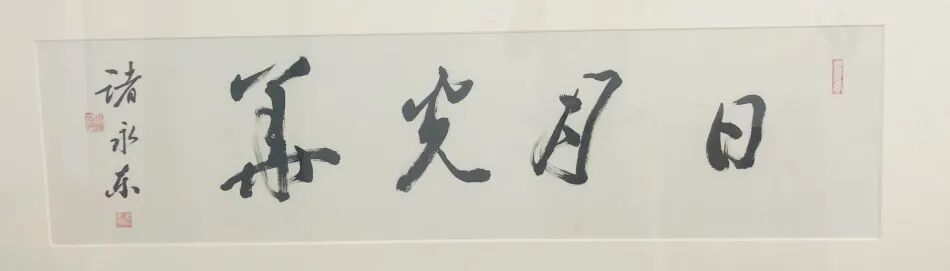 日月光華
诸永东